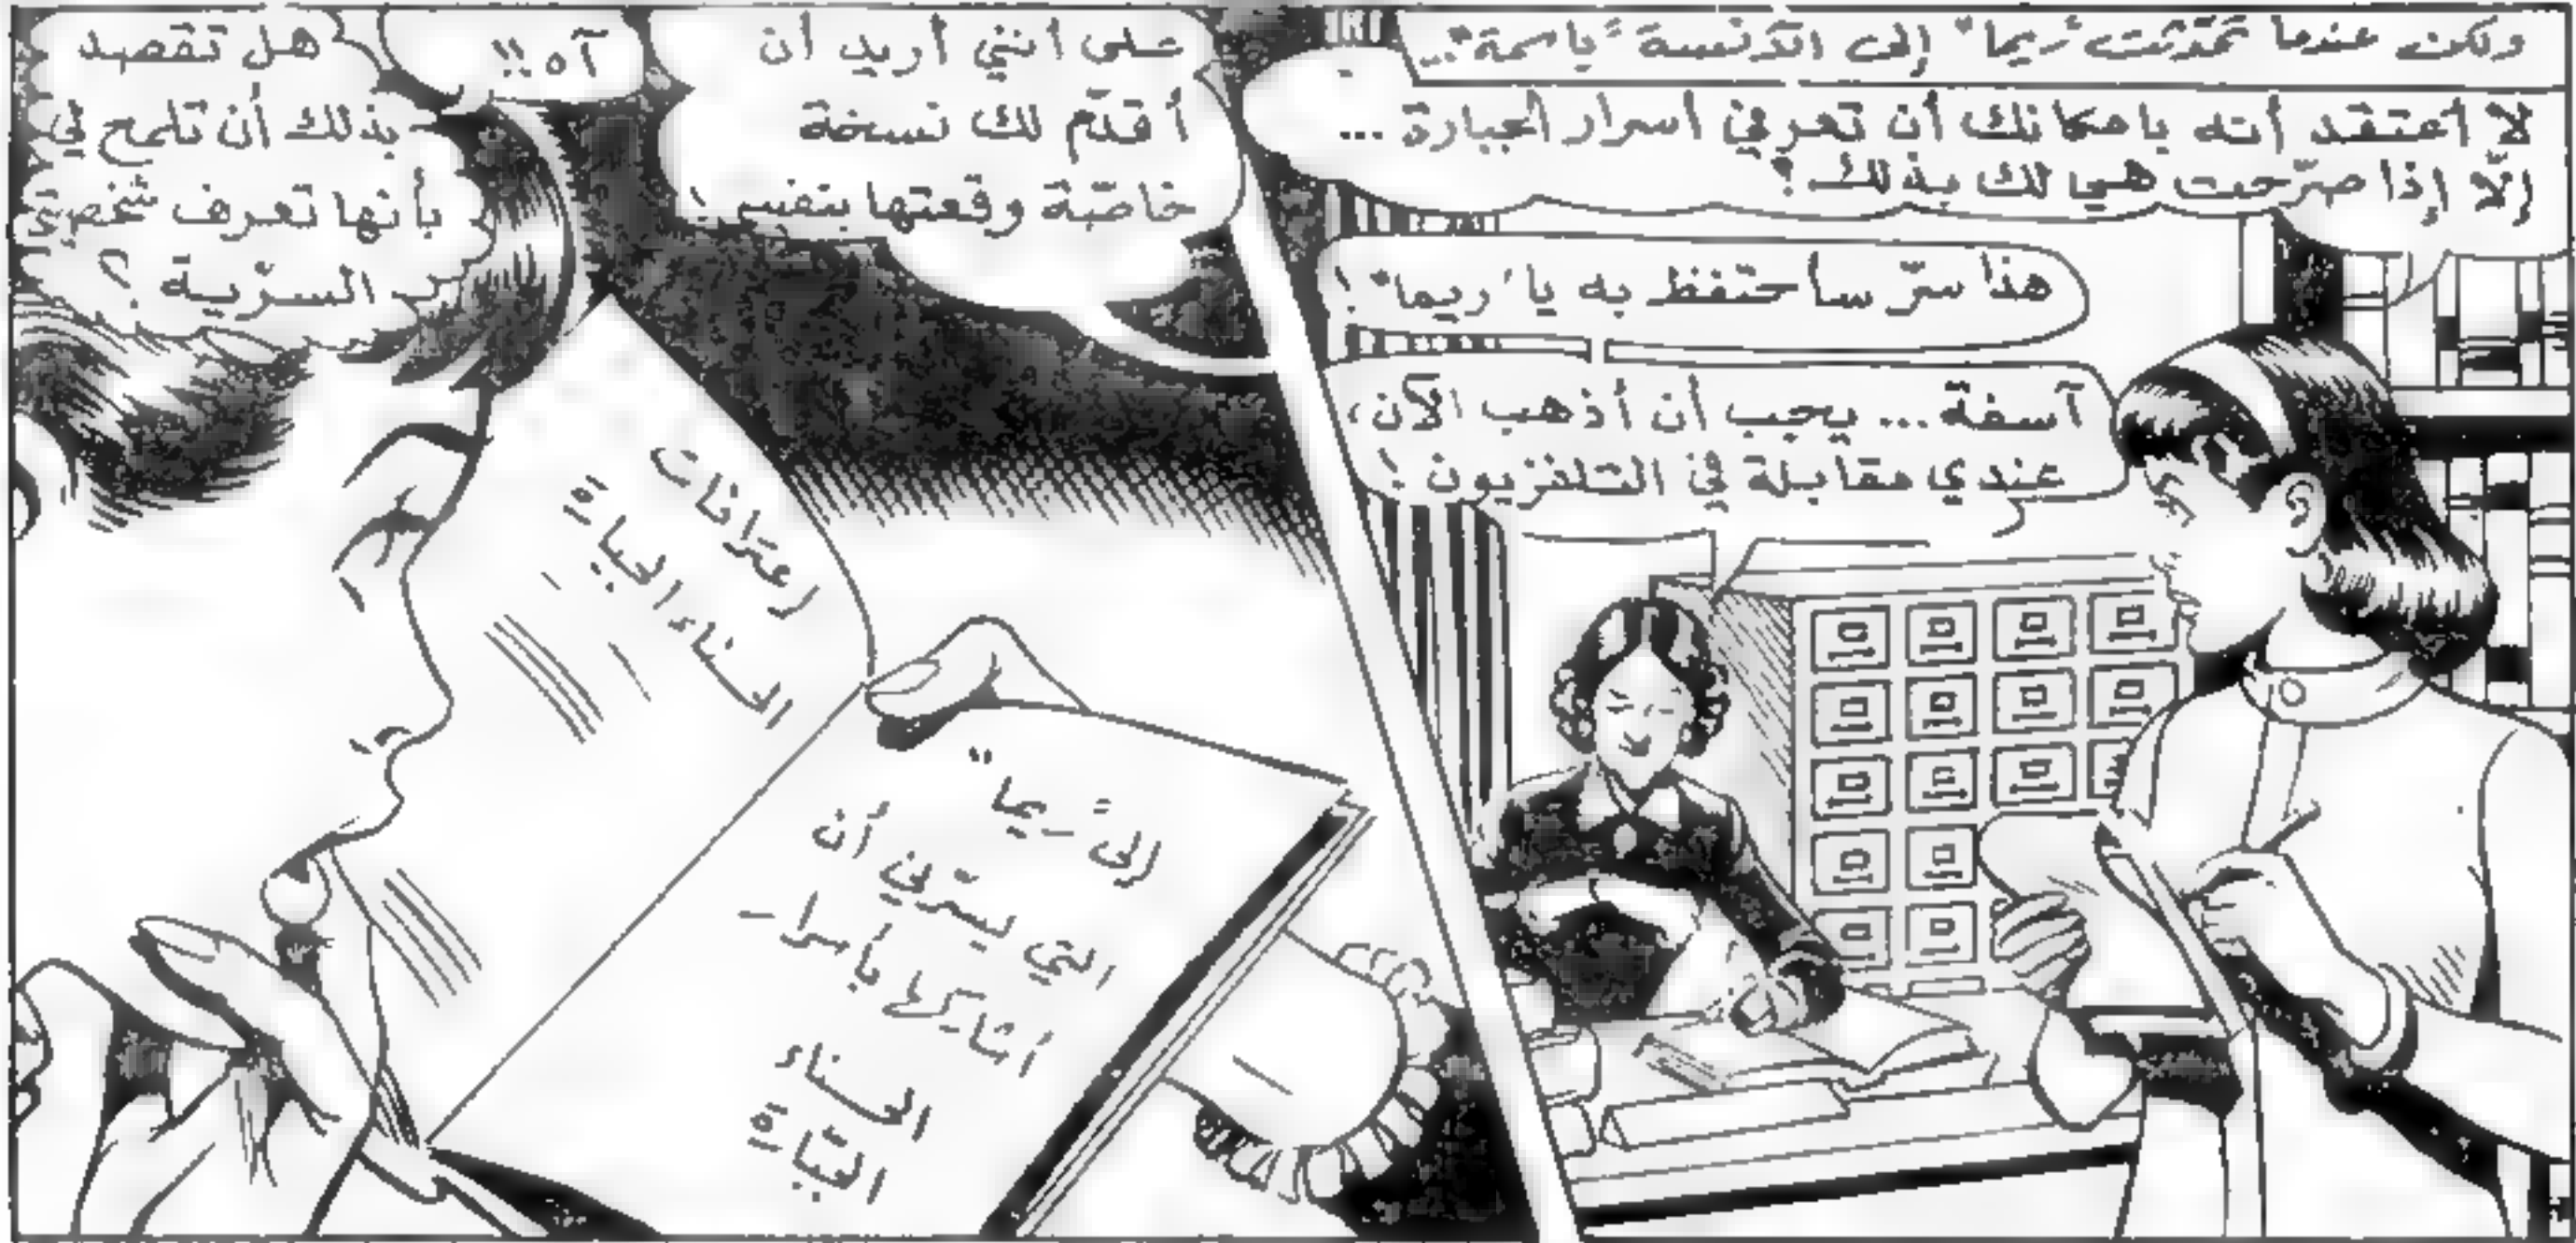 ولكن عندما تحدثت "ريما" إلى الآنسة "باسمة"...
لا أعتقد أنه بامكانك أن تعرفي أسرار الجبارة ...
إلّا إذا صرّحت هي لك بذلك؟
هذا سرّ سأحتفظ به يا "ريما"!
آسفة... يجب أن أذهب الآن،
عندي مقابلة في التلفزيون!
على أنني أريد أن
أقدّم لك نسخة
خاصّة وقعتها بنفسي!
آه!!
هل تقصد
بذلك أن تلمح لي
بأنها تعرف شخصيتي
السرّية؟
اعترافات
الحسناء الجبارة
إلى "ريما"
التي يسرّني أن
أشاركها بأسرار
الحسناء
الجبّارة